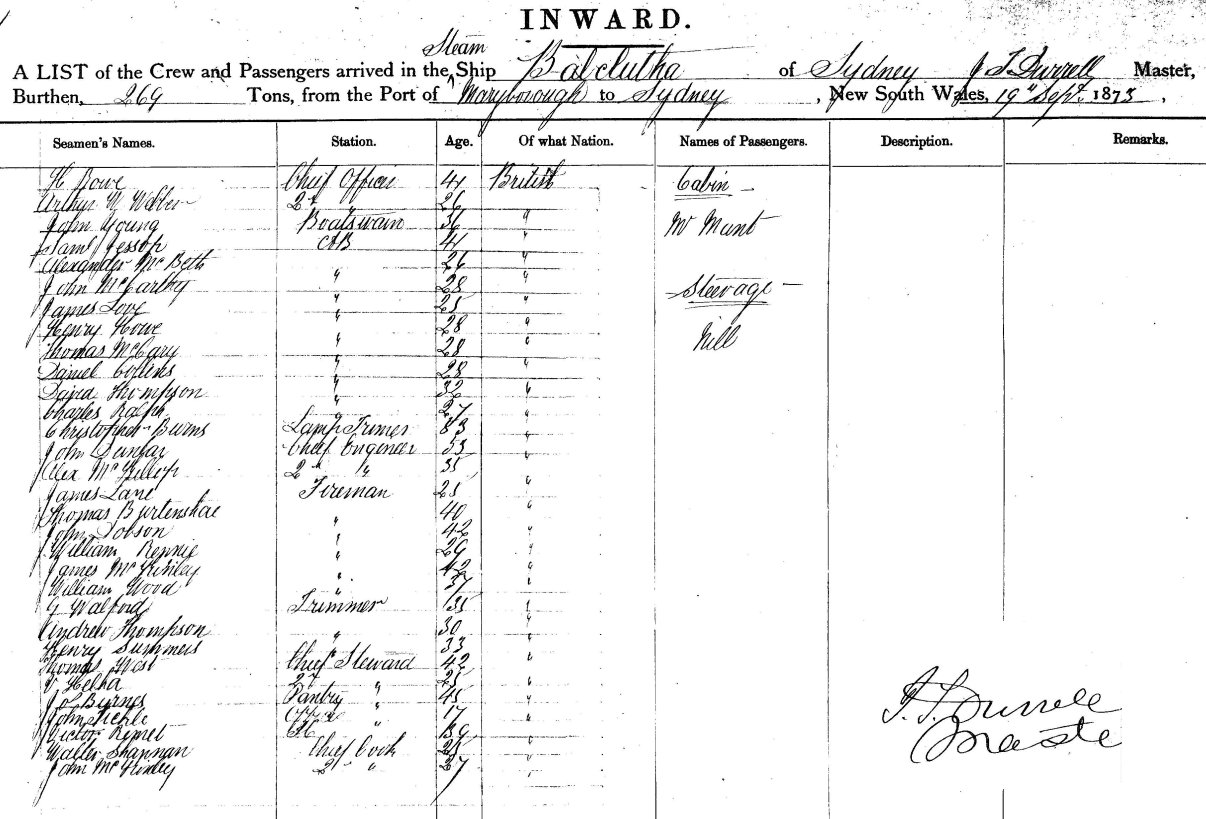 INWARD.
Steam
A LIST of the Crew and Passengers arrived in the Ship Balclutha of Sydney J T Durrell Master,
Burthen, 269 Tons, from the Port of Maryborough to Sydney, New South Wales, 19th Sept. 1873,
Seamen's Names. Station. Age. Of what Nation. Names of Passengers. Description. Remarks.
H Rowe Chief Officer 41 British Cabin
Arthur W Webber 2d " 26
John Young Boatswain 36 " Mr Mant
Saml Jessop AB 41 "
Alexander McBeth 26 "
John McCarthy " 28 " Steerage
James Love " 25 "
Henry Howe " 28 " Nill
Thomas McGary " 28 "
Daniel Collins " 28 "
David Thompson " 32 "
Charles Ralph " 27 "
Christopher Burns Lamp Trimer "
John Dunbar Chief Engineer 53 "
Alex McKillop 2d " 35
James Lane Fireman 25 "
Thomas Burtenshae " 40 "
John Dobson " 42 "
William Rennie " 29 "
James McKinley " 42 "
William Wood " 37 "
G Walford Trimmer 35 "
Andrew Thompson " 30 "
Henry Summers 33 "
Thomas West Chief Steward 42 "
2d 25 "
Jos Burnes Pantry " 45 "
John " 17 "
Victor Rimel
Walter Shannan Chief Cook
John McKinley 2d " 27
J. T. Durrell
Maste